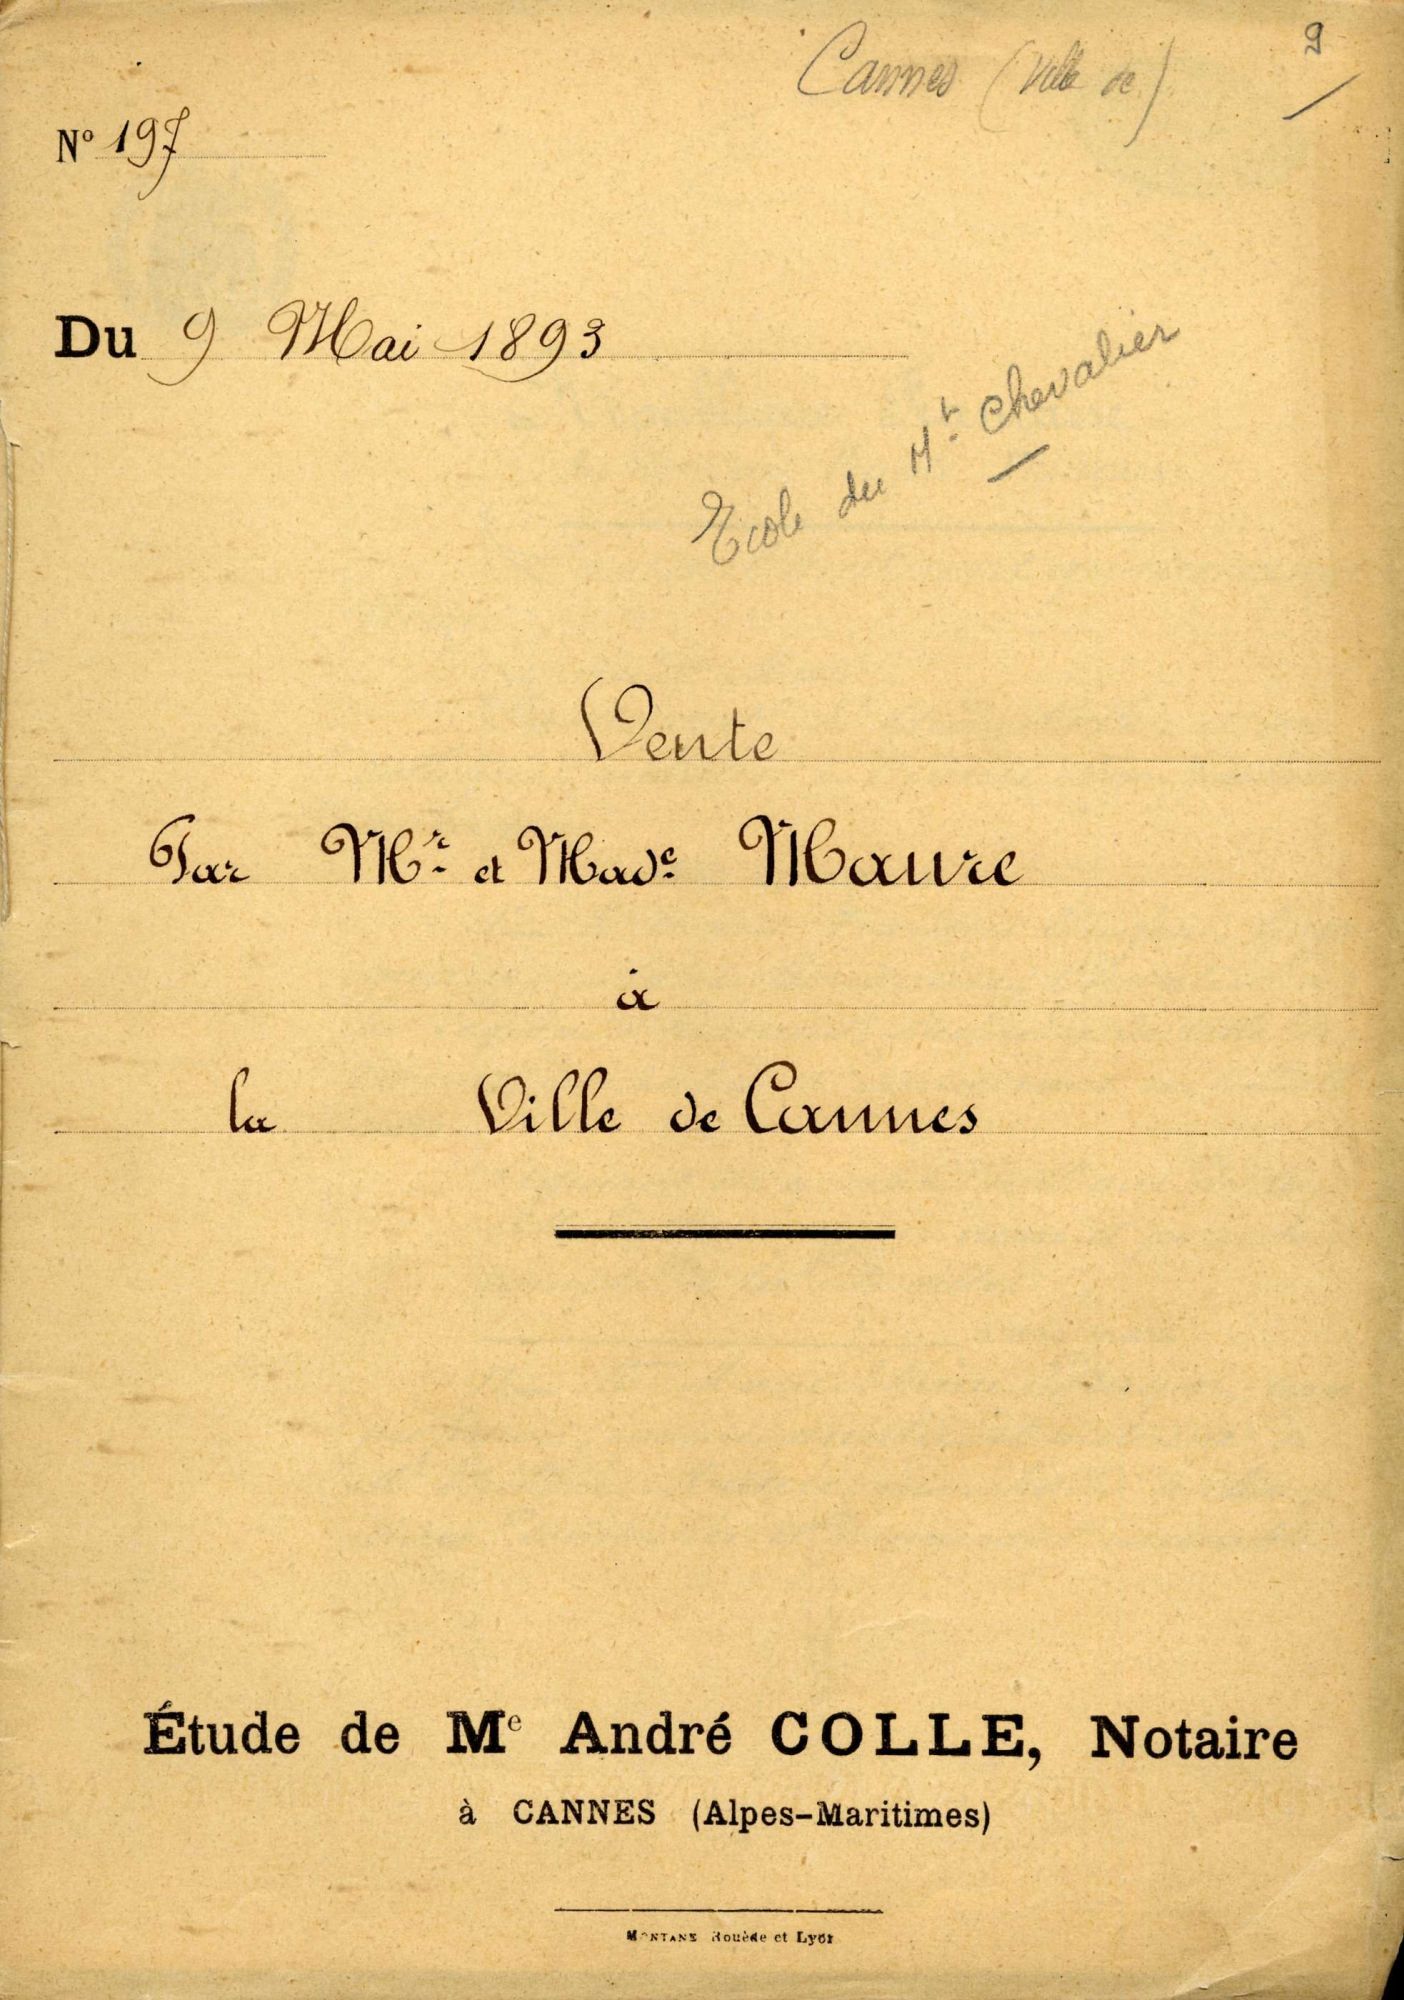 Cannes (Ville de)
9
Nº 197
Du 9 Mai 1893
Ecole du Mt. Chevalier
Vente
Par Mr. et Made. Maure
à
la Ville de Cannes
Étude de Me André COLLE, Notaire
à CANNES (Alpes-Maritimes)
Rouède et